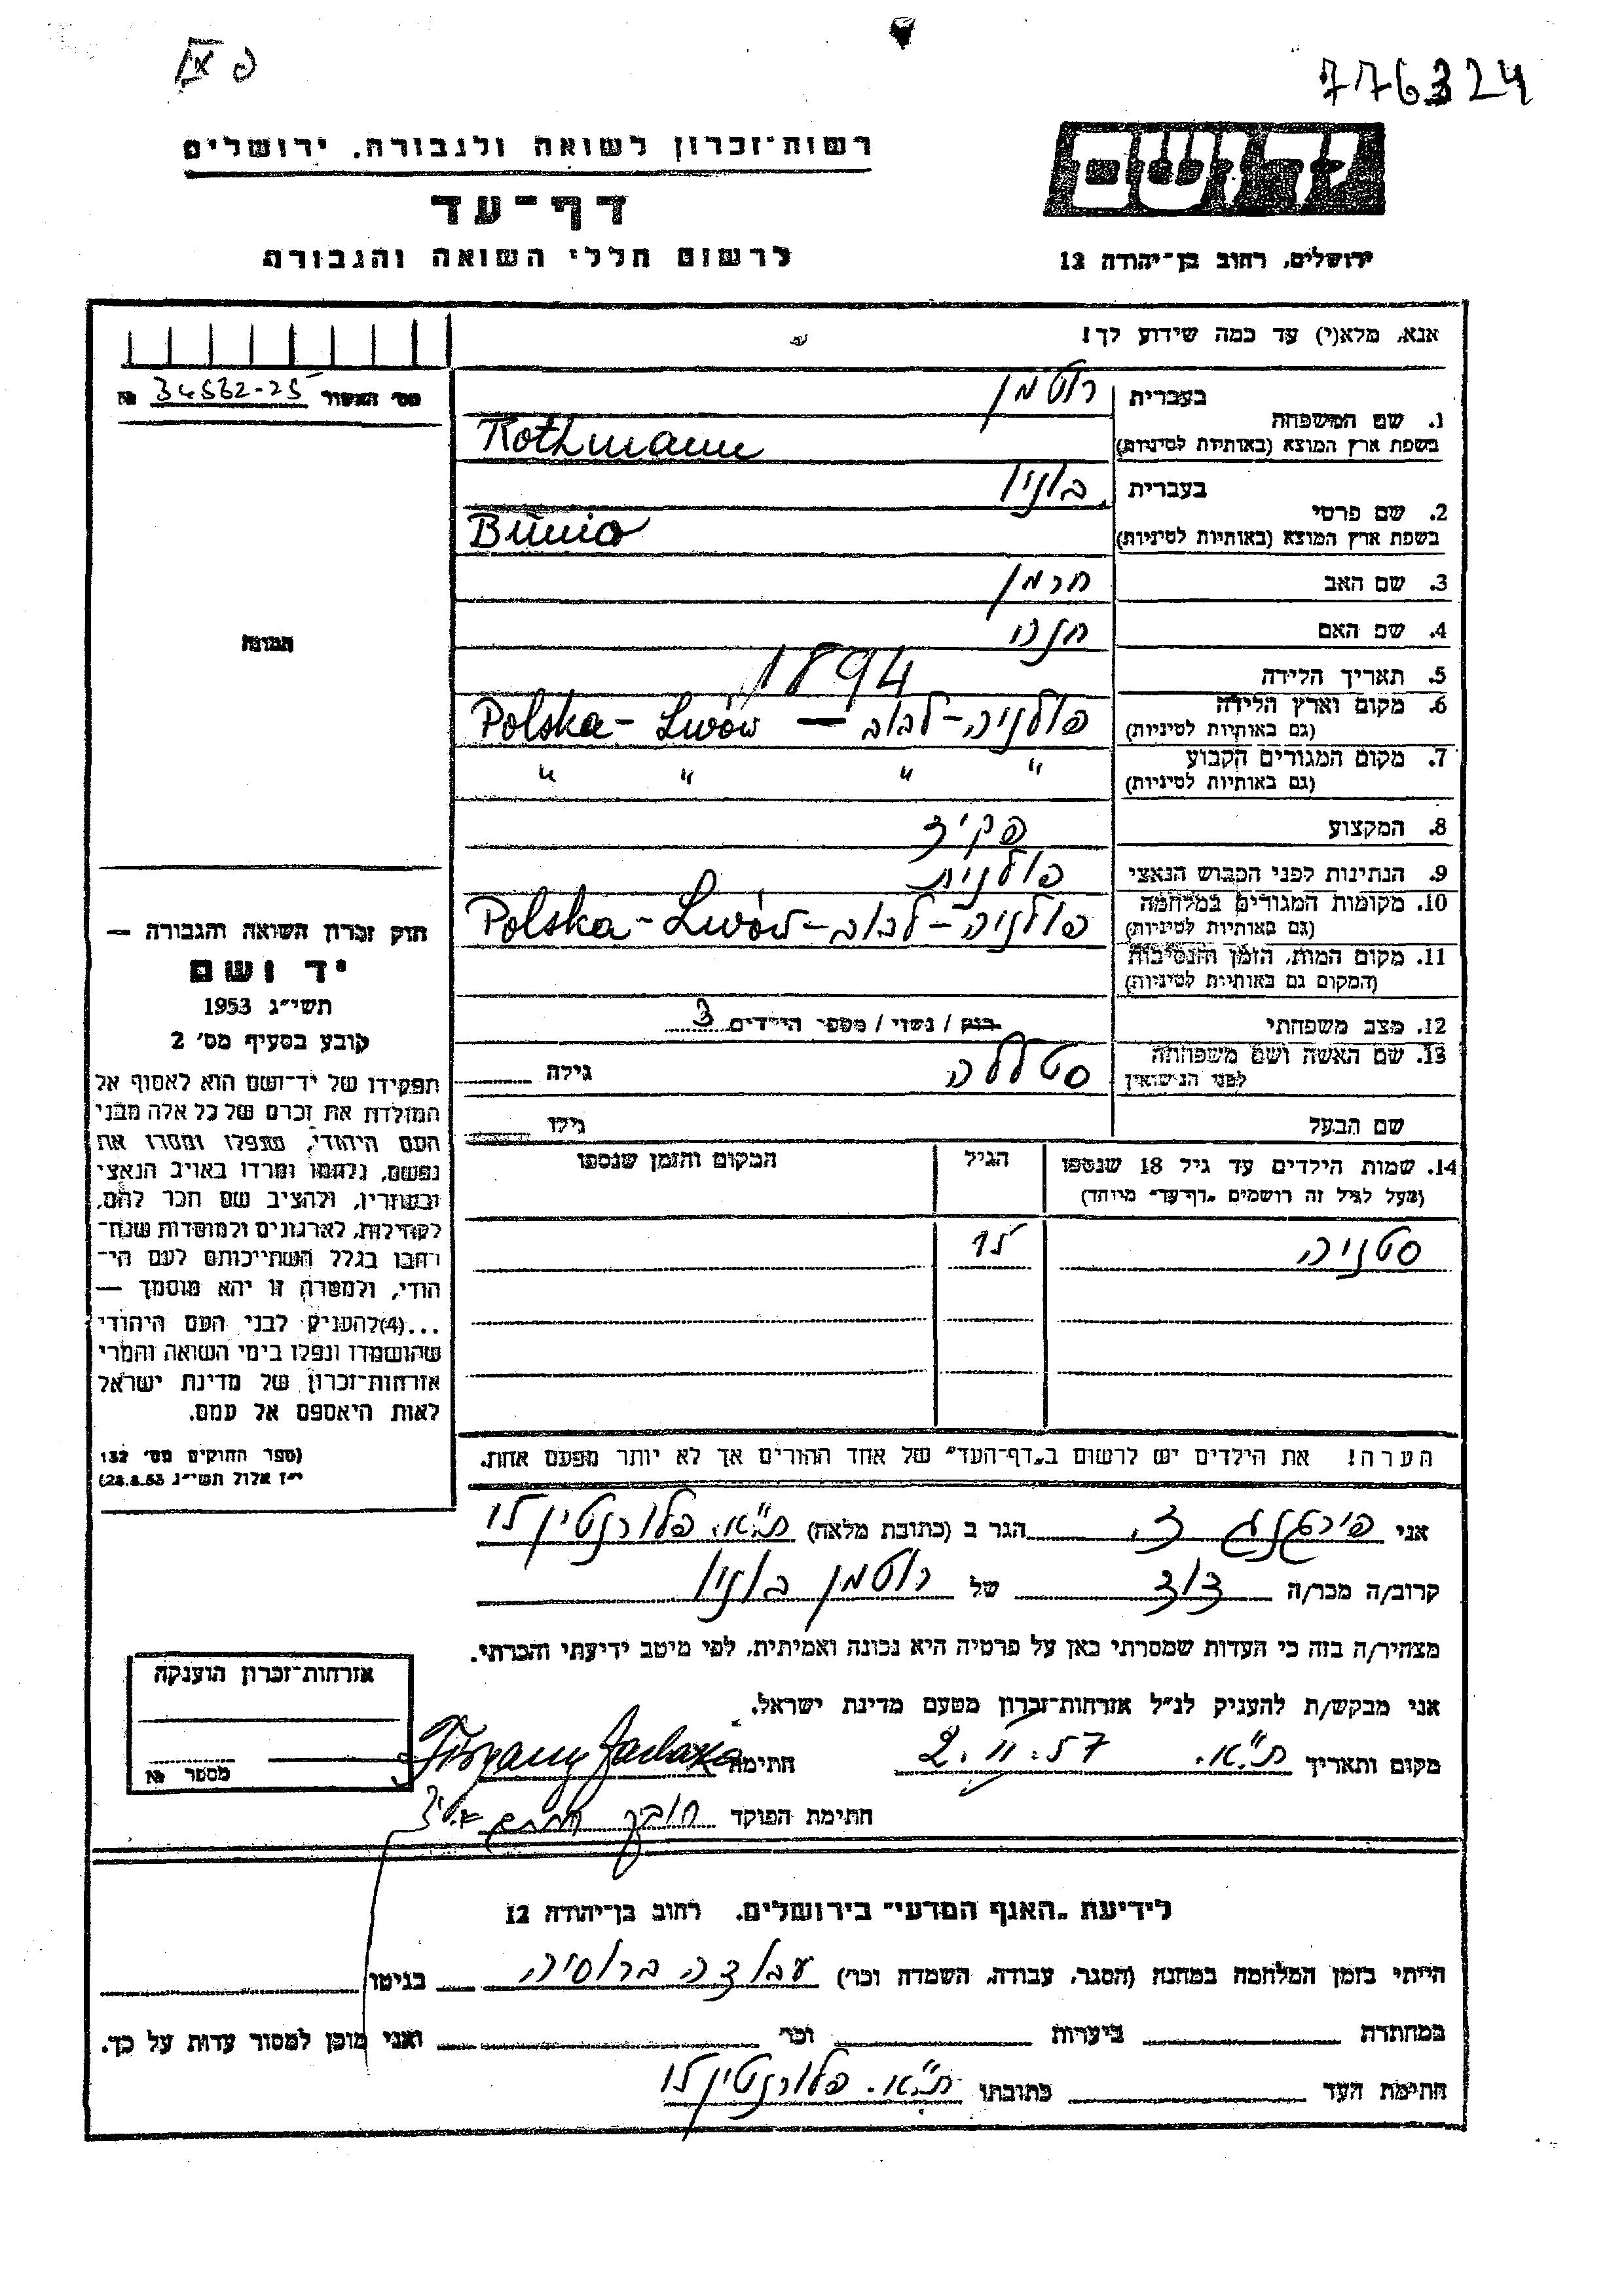 776324
יד ושם
רשות־זכרון לשואה ולגבורה, ירושלים
דף־עד
לרשום חללי השואה והגבורה
ירושלים, רחוב בן־יהודה 12
אנא, מלא(י) עד כמה שידוע לך!
מס׳ האשור 34532-25 №
1. שם המשפחה
בעברית רוטמן
בשפת ארץ המוצא (באותיות לטיניות) Rothmann
2. שם פרטי
בעברית בוניו
בשפת ארץ המוצא (באותיות לטיניות) Bunio
3. שם האב הרמן
4. שם האם חנה
5. תאריך הלידה 1894
6. מקום וארץ הלידה פולניה - לבוב — Polska - Lwów
(גם באותיות לטיניות)
7. מקום המגורים הקבוע " " " "
(גם באותיות לטיניות)
8. המקצוע פקיד
9. הנתינות לפני הכבוש הנאצי פולנית
10. מקומות המגורים במלחמה פולניה - לבוב - Polska - Lwów
(גם באותיות לטיניות)
11. מקום המות, הזמן והנסיבות
(המקום גם באותיות לטיניות)
12. מצב משפחתי רווק / נשוי / מספר הילדים 3
13. שם האשה ושם משפחתה
לפני הנישואין סטלה גילה
שם הבעל גילו
14. שמות הילדים עד גיל 18 שנספו
(מעל לגיל זה רושמים „דף־עד" מיוחד)
הגיל
המקום והזמן שנספו
סטניה 15
הערה! את הילדים יש לרשום ב„דף־העד" של אחד ההורים אך לא יותר מפעם אחת.
התמונה
חוק זכרון השואה והגבורה —
יד ושם
תשי״ג 1953
קובע בסעיף מס׳ 2
תפקידו של יד־ושם הוא לאסוף אל
המולדת את זכרם של כל אלה מבני
העם היהודי, שנפלו ומסרו את
נפשם, נלחמו ומרדו באויב הנאצי
ובעוזריו, ולהציב שם וזכר להם,
לקהילות, לארגונים ולמוסדות שנח־
רבו בגלל השתייכותם לעם הי־
הודי, ולמטרה זו יהא מוסמך —
...(4) להעניק לבני העם היהודי
שהושמדו ונפלו בימי השואה והמרי
אזרחות־זכרון של מדינת ישראל
לאות היאספם אל עמם.
(ספר החוקים מס׳ 132
י״ז אלול תשי״ג 28.8.53)
אני ד. הגר ב (כתובת מלאה) ת"א. פלורנטין 15
קרוב/ה מכר/ה דוד של רוטמן בוניו
מצהיר/ה בזה כי העדות שמסרתי כאן על פרטיה היא נכונה ואמיתית, לפי מיטב ידיעתי והכרתי.
אני מבקש/ת להעניק לנ״ל אזרחות־זכרון מטעם מדינת ישראל.
מקום ותאריך ת"א. 2.11.57 חתימה
חתימת הפוקד
אזרחות־זכרון הוענקה
מספר №
לידיעת „האגף המדעי" בירושלים, רחוב בן־יהודה 12
הייתי בזמן המלחמה במחנה (הסגר, עבודה, השמדה וכו׳) עבודה ברוסיה בגיטו
במחתרת ביערות וכו׳ ואני מוכן למסור עדות על כך.
חתימת העד כתובתו ת"א. פלורנטין 15